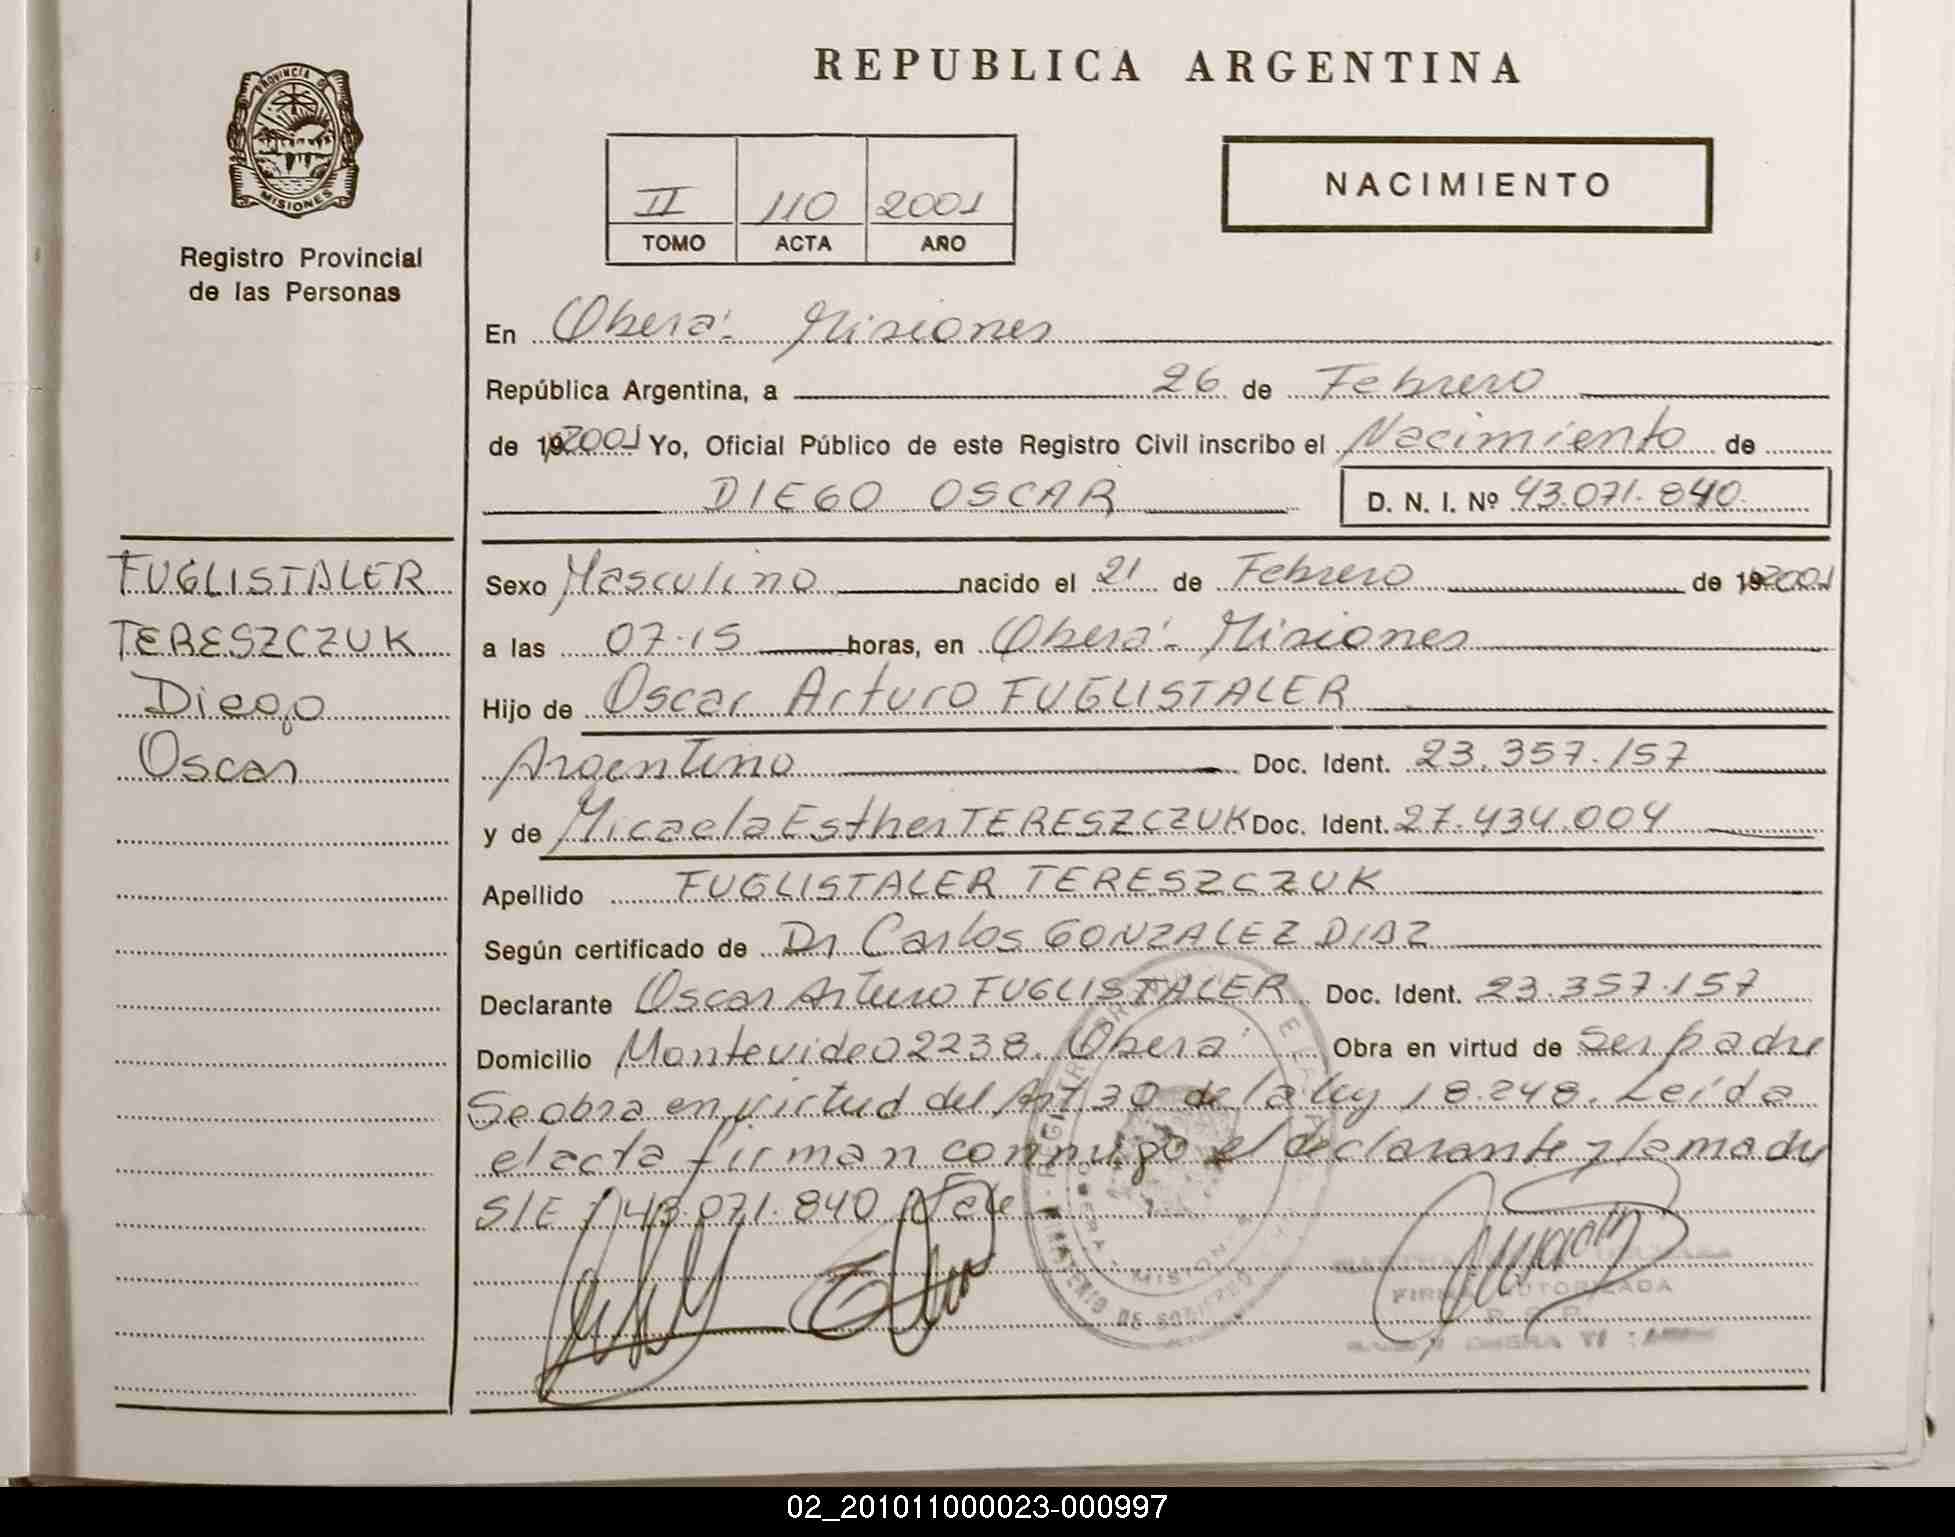 PROVINCIA DE
MISIONES
Registro Provincial
de las Personas
FUGLISTALER
TERESZCZUK
Diego
Oscar
REPUBLICA ARGENTINA
II 110 2001
TOMO ACTA AÑO
NACIMIENTO
En Oberá - Misiones
República Argentina, a 26 de Febrero
de 19 2001 Yo, Oficial Público de este Registro Civil inscribo el Nacimiento de
DIEGO OSCAR D. N. I. Nº 43.071.840
Sexo Masculino nacido el 21 de Febrero de 19 2001
a las 07.15 horas, en Oberá - Misiones
Hijo de Oscar Arturo FUGLISTALER
Argentino Doc. Ident. 23.357.157
y de Micaela Esther TERESZCZUK Doc. Ident. 27.434.004
Apellido FUGLISTALER TERESZCZUK
Según certificado de Dr Carlos GONZALEZ DIAZ
Declarante Oscar Arturo FUGLISTALER Doc. Ident. 23.357.157
Domicilio Montevideo 2238. Oberá Obra en virtud de Ser padre
Se obra en virtud del Art 30 de la ley 18.248. Leída
el acta firman conmigo el declarante y la madre
S/E / 43.071.840 / Vale
MINISTERIO DE GOBIERNO
OBERA - MISIONES
FIRMA AUTORIZADA
02_201011000023-000997